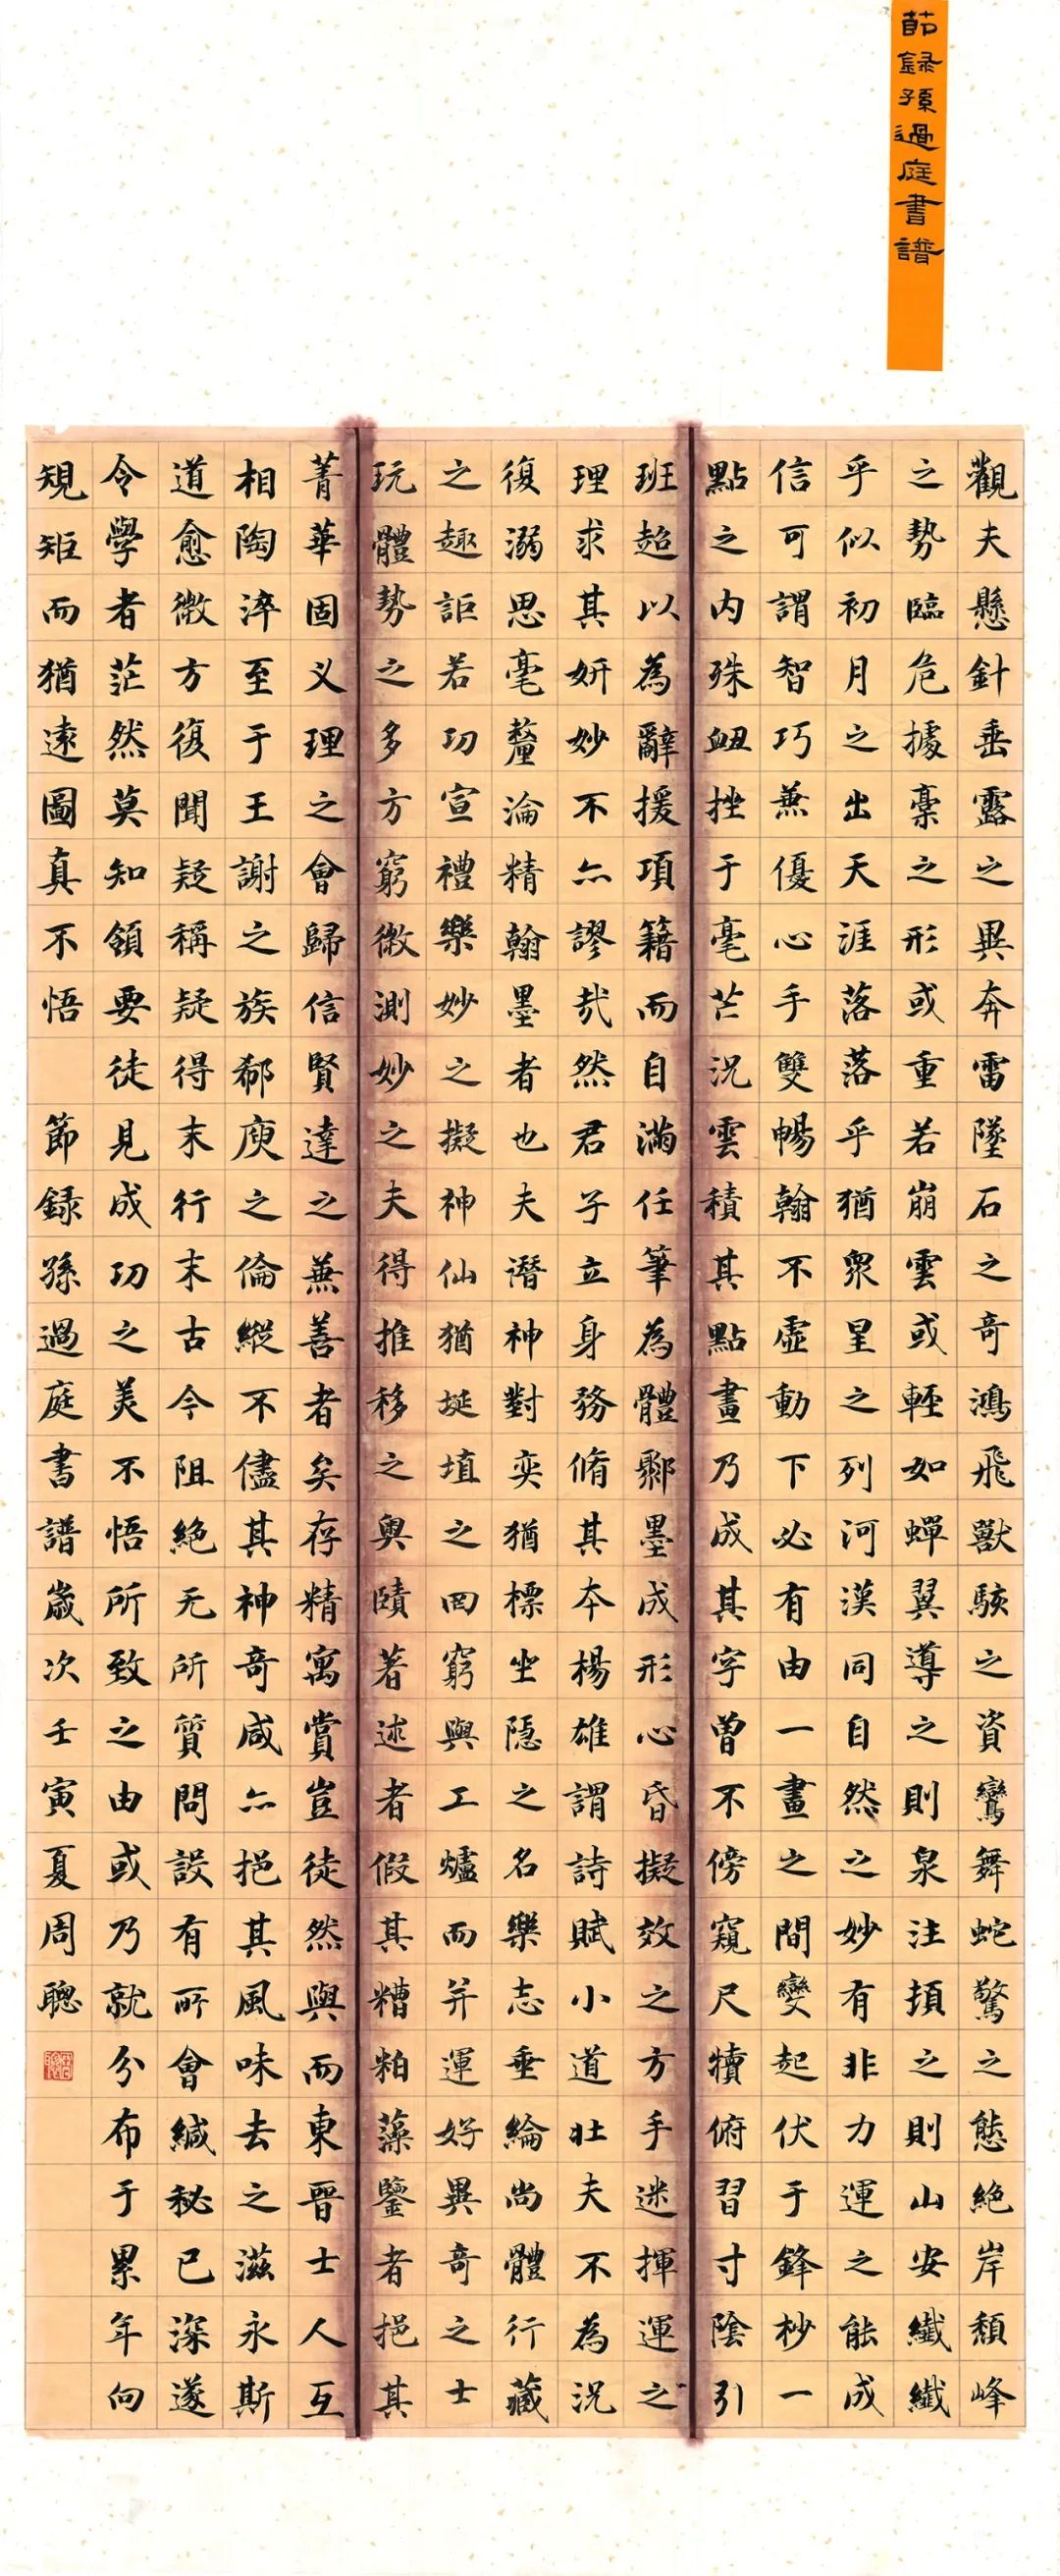 莭録孫過庭書譜
觀夫懸針垂露之異奔雷墜石之奇鴻飛獸駭之資鸞舞蛇驚之態絕岸頹峰
之勢臨危據槀之形或重若崩雲或輕如蟬翼導之則泉注頓之則山安纖纖
乎似初月之出天涯落落乎猶眾星之列河漢同自然之妙有非力運之能成
信可謂智巧兼優心手雙暢翰不虛動下必有由一畫之間變起伏于鋒杪一
點之內殊衄挫于毫芒況雲積其點畫乃成其字曾不傍窺尺犢俯習寸陰引
班超以為辭援項籍而自滿任筆為體聚墨成形心昏擬效之方手迷揮運之
理求其妍妙不亦謬哉然君子立身務脩其本楊雄謂詩賦小道壯夫不為況
復溺思毫釐淪精翰墨者也夫潛神對奕猶標坐隱之名樂志垂綸尚體行藏
之趣詎若功宣禮樂妙之擬神仙猶埏埴之罔窮與工爐而并運好異奇之士
玩體勢之多方窮微測妙之夫得推移之奧賾著述者假其糟粕藻鑒者挹其
菁華固义理之會歸信賢達之兼善者矣存精寓賞豈徒然與而東晉士人互
相陶淬至于王謝之族郗庾之倫縱不儘其神奇咸亦挹其風味去之滋永斯
道愈微方復聞疑稱疑得末行末古今阻絕无所質問設有所會緘秘已深遂
令學者茫然莫知領要徒見成功之美不悟所致之由或乃就分布于累年向
規矩而猶遠圖真不悟 節録孫過庭書譜歲次壬寅夏周聰